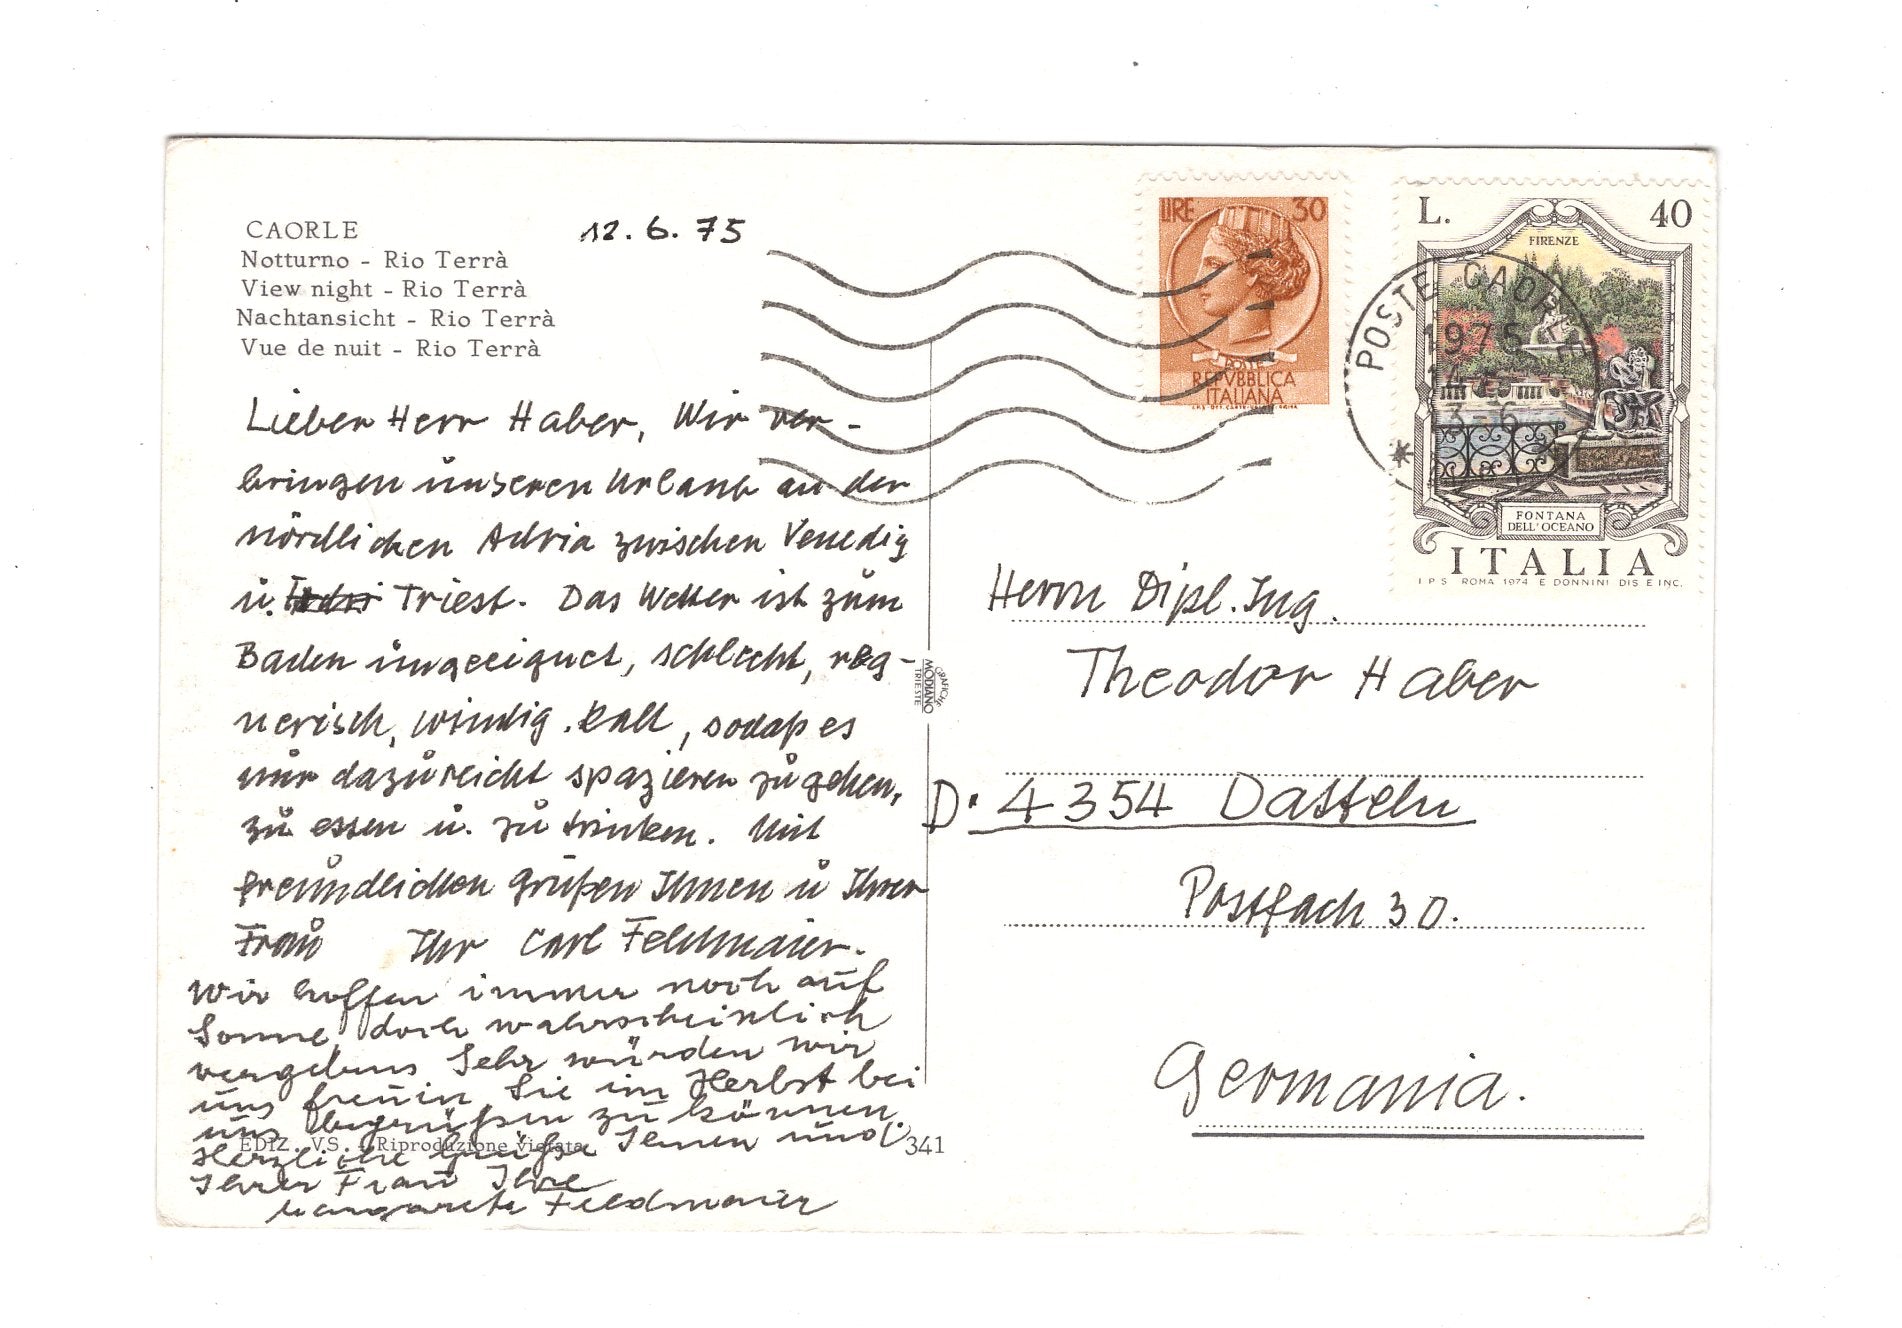 CAORLE
Notturno - Rio Terrà
View night - Rio Terrà
Nachtansicht - Rio Terrà
Vue de nuit - Rio Terrà
12.6.75
Lieber Herr Haber, Wir ver-
bringen unseren Urlaub an der
nördlichen Adria zwischen Venedig
u. Triest. Das Wetter ist zum
Baden ungeeignet, schlecht, reg-
nerisch, windig. kalt, sodaß es
nur dazu reicht spazieren zu gehen,
zu essen u. zu trinken. Mit
freundlichen Grüßen Ihnen u Ihrer
Frau Ihr Carl Feldmaier.
Wir hoffen immer noch auf
Sonne, doch wahrscheinlich
vergebens Sehr würden wir
uns freuin Sie im Herbst bei
uns begrüßen zu können
Herzliche Grüße Ihnen und
Ihrer Frau Ihre
Margarete Feldmaier
EDIZ. V.S. - Riproduzione vietata
341
GRAFICHE
MODIANO
TRIESTE
LIRE 30
POSTE
REPVBBLICA
ITALIANA
I.P.S. OFF. CARTE-VALORI ROMA
L. 40
FIRENZE
FONTANA
DELL'OCEANO
ITALIA
I P S ROMA 1974 E DONNINI DIS E INC.
POSTE CAORLE
1975
14
3-6
Herrn Dipl. Ing.
Theodor Haber
D. 4354 Datteln
Postfach 30.
Germania.